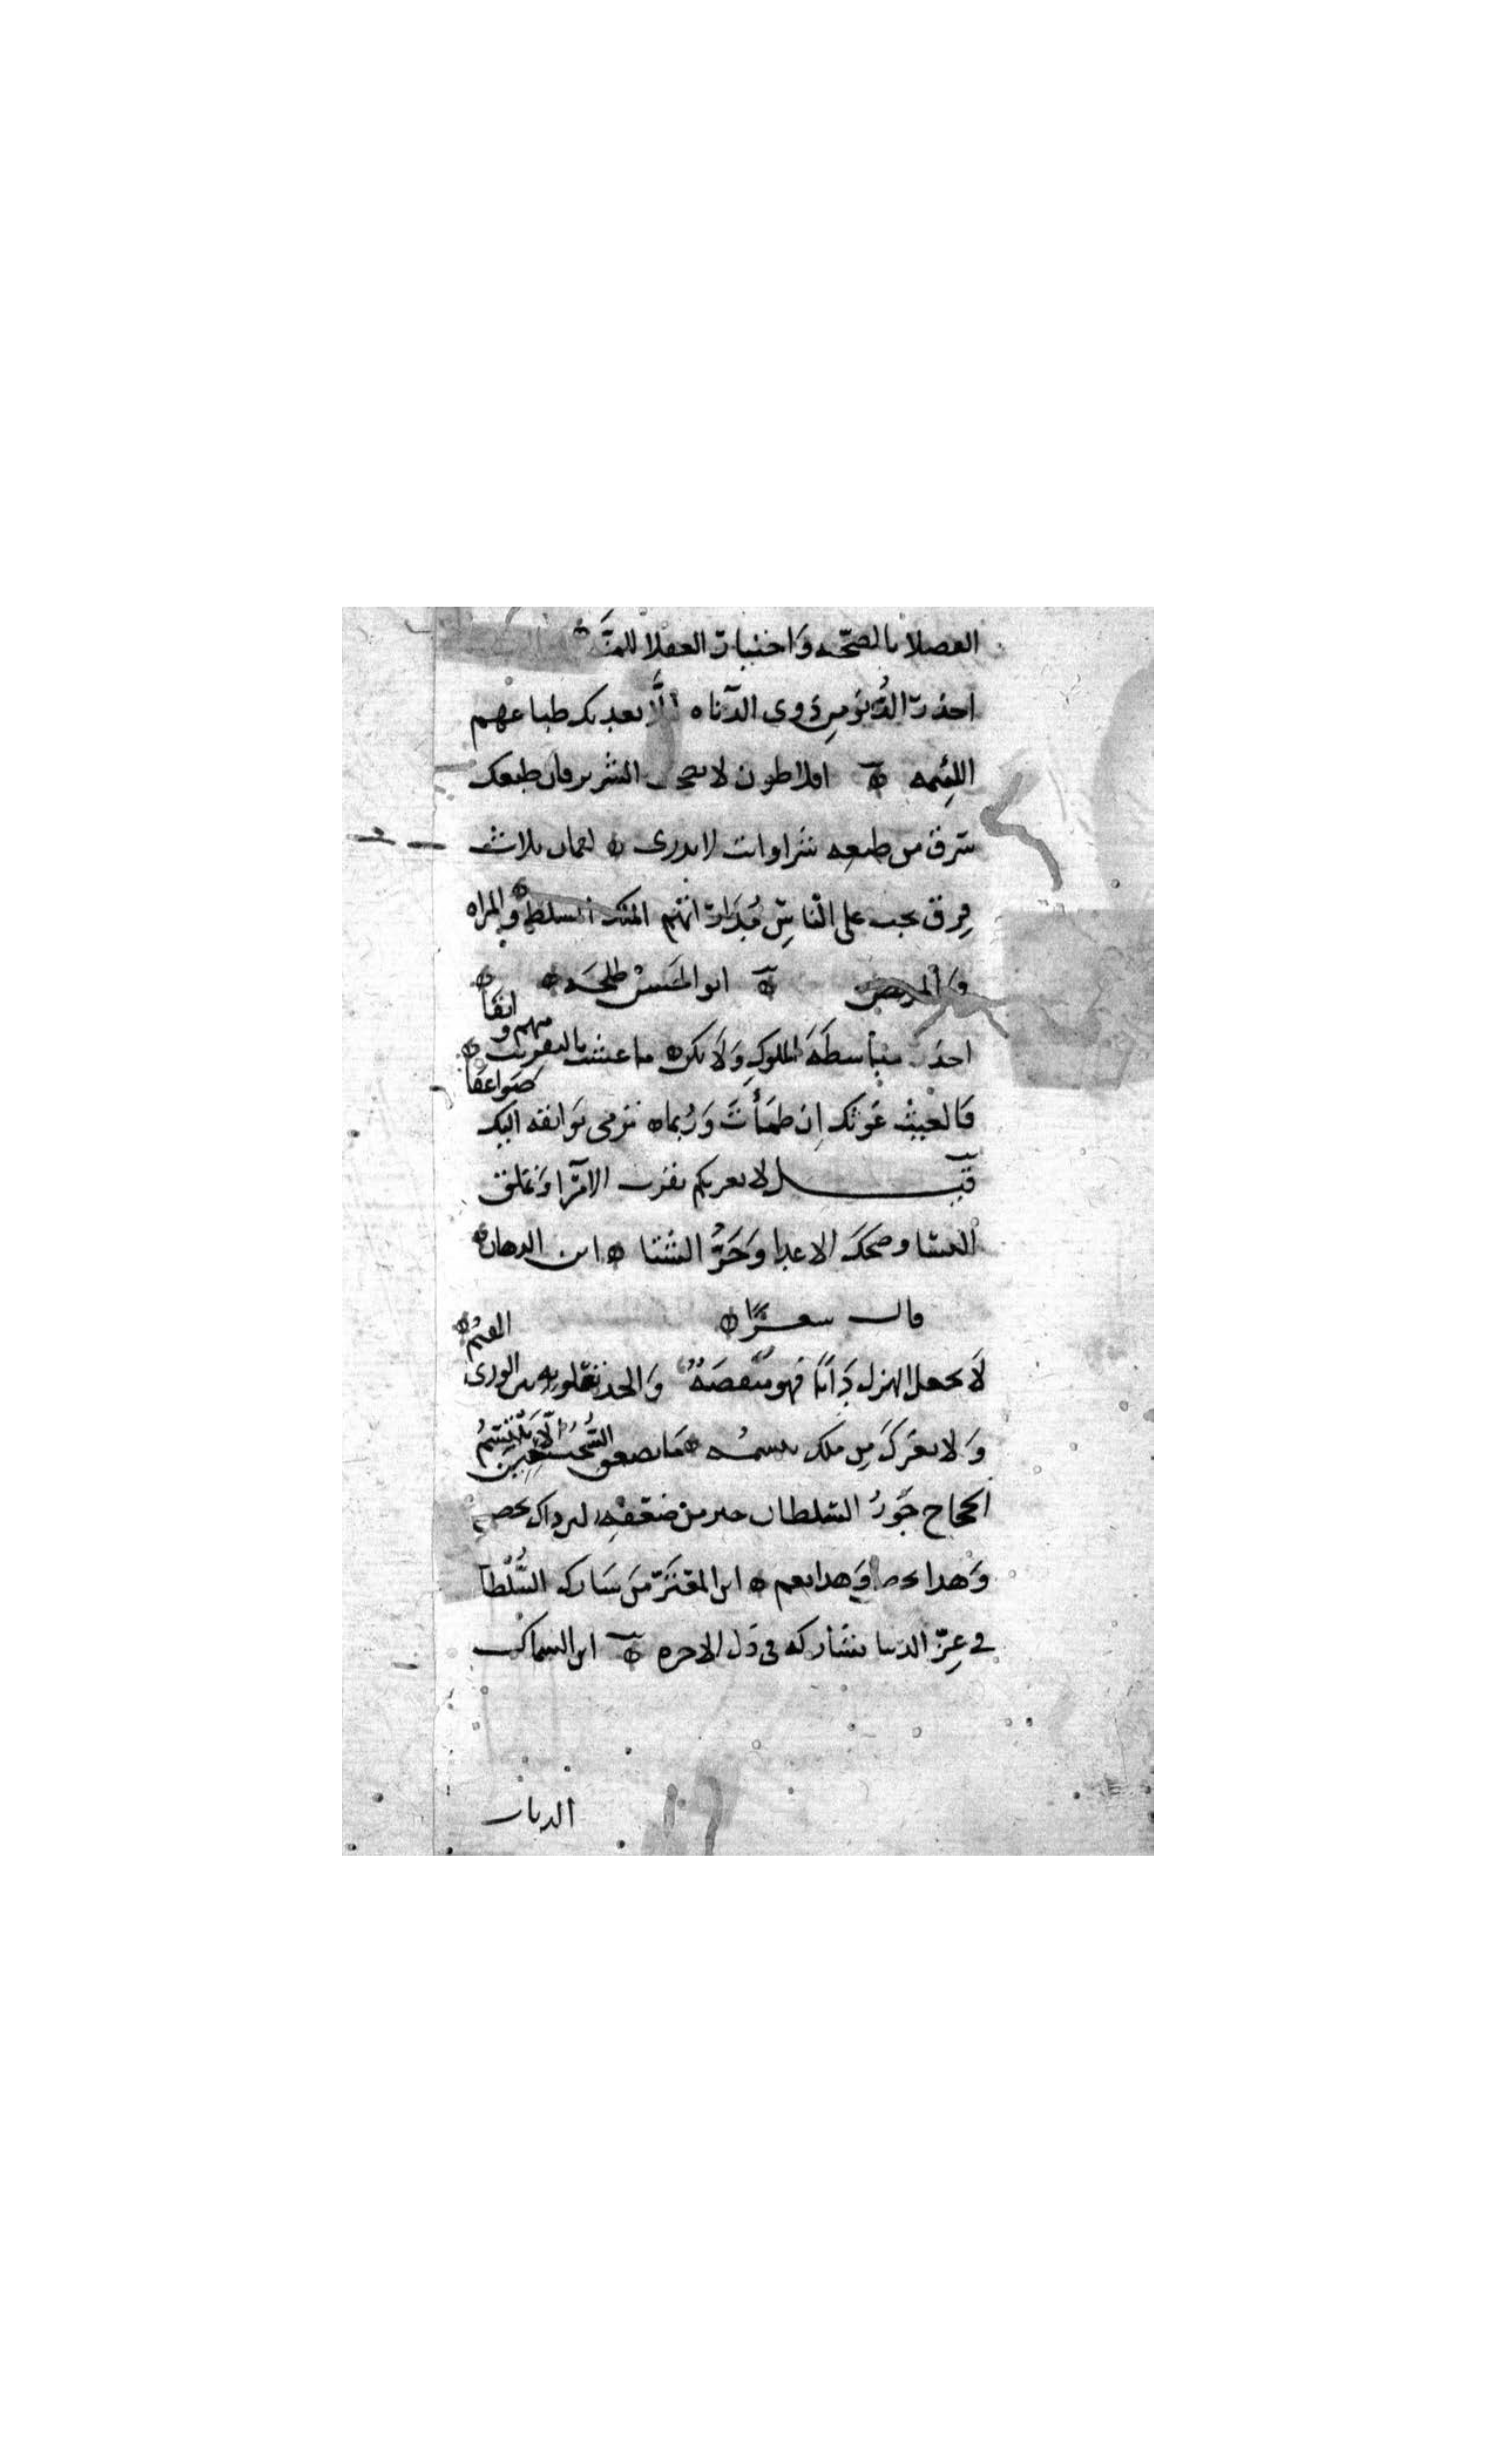 الفضلا بالصحه واختبارت العقلا للمنة
احذر الدنو من ذوى الدناه ألّا يعديك طباعهم
اللئيمه افلاطون لا تصحب الشرير فان طبعك
سرق من طبعه شرا وانت لا تدرى لقمان ثلاث
فِرق يجب على الناس مُدَاراتهم الملك السلط والمراه
والمريض ابو الحسن طلحه
احذر مباسطة الملوك وَلا تكن ما عشت بالتقريب منهم واثقا
فَالغيث غوثك ان ظمأت وَرُبما ترمى بوارقه اليك صواعقا
قيل لا يغريكم تقرب الامرا وتملق
النسا وضحك الاعدا وَحَرّ الشتا ابن الدهان
قال شعرًا
لَا تجعل الهزل دَابًا فهو منقصَةٌ وَالجد تغلو به بين الورى القيمُ
وَلا يغرك من ملك تبسمُه مَا تصعق السُحب الّا حِين تبتسمُ
الحجاج جَورُ السلطان خير من ضعفه لان ذاك يخص
وَهذا يعم ابن المعتز من شارك السُّلطا
في عِزّ الدنيا شاركه فى ذل الاخره ابن السماك